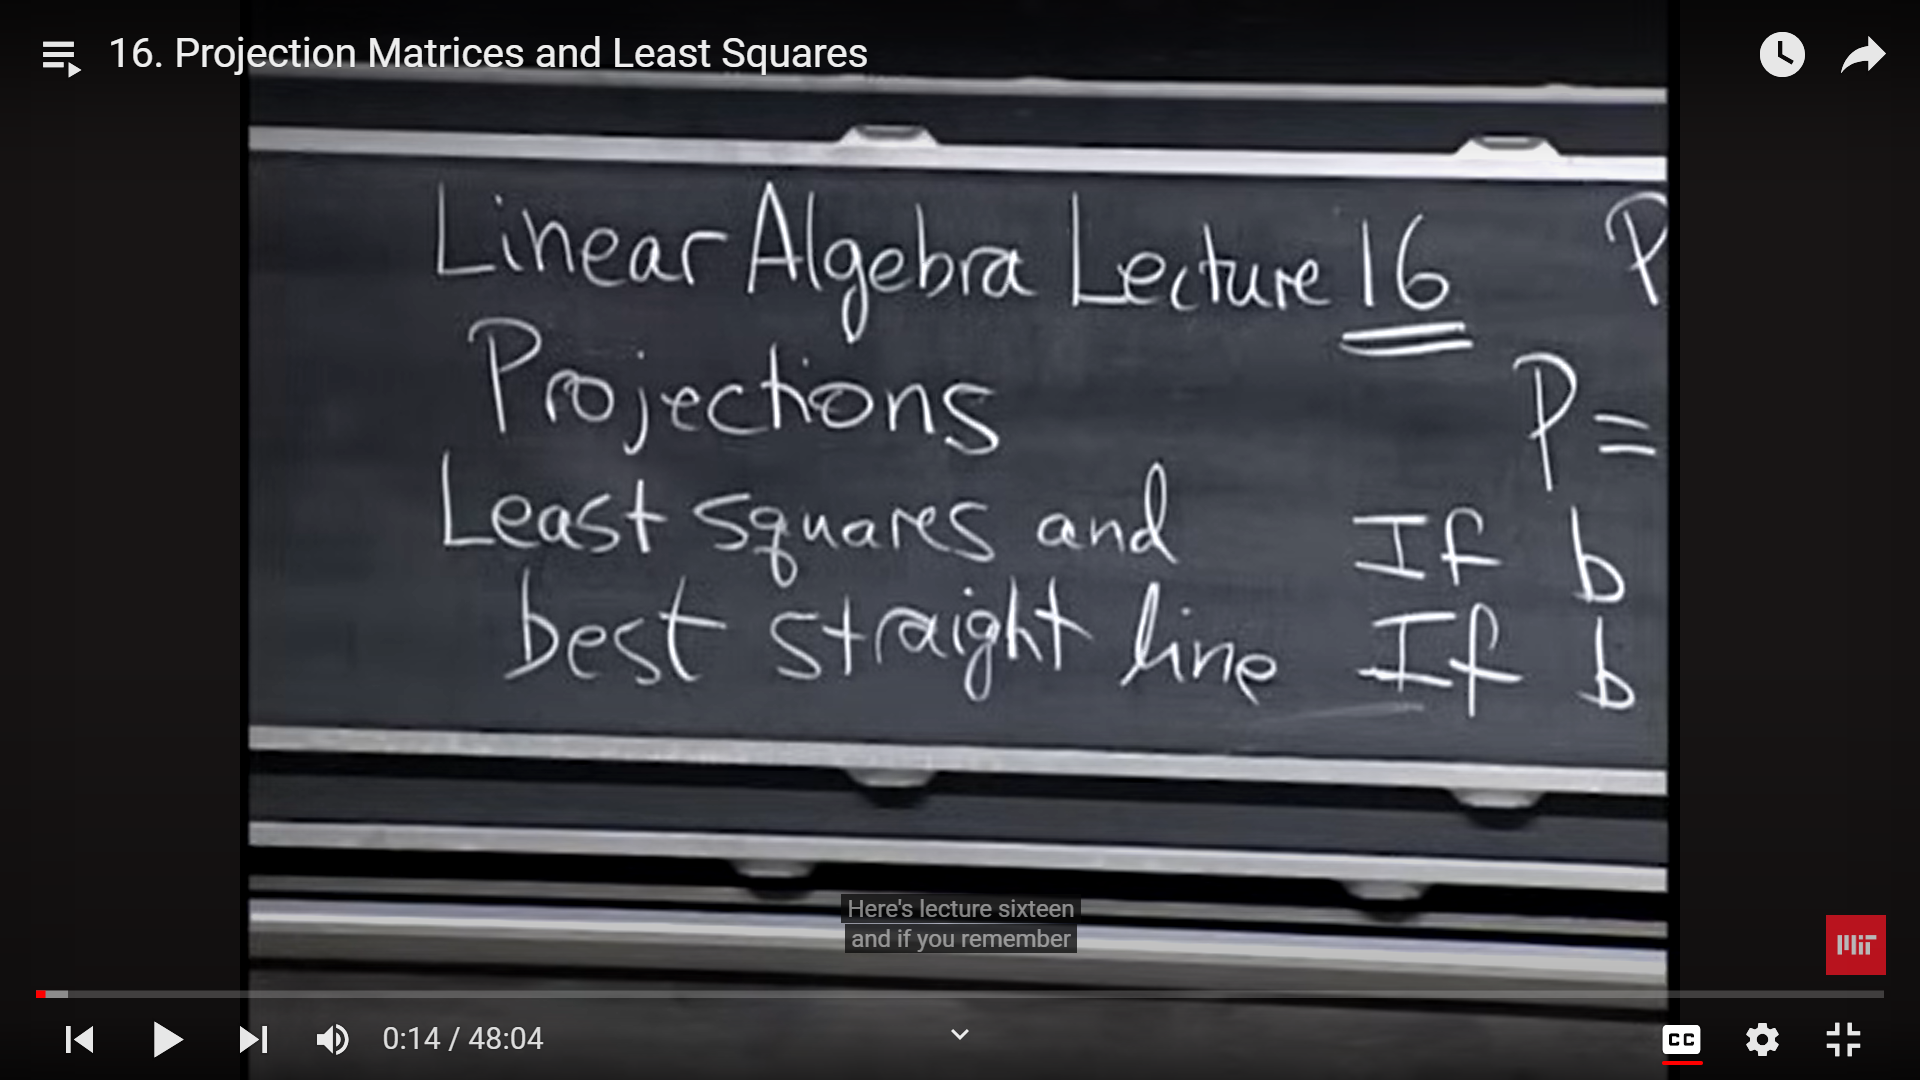 16. Projection Matrices and Least Squares
Linear Algebra Lecture 16
Projections
Least squares and
best straight line
P
P =
If b
If b
Here's lecture sixteen
and if you remember
MIT
0:14 / 48:04
CC